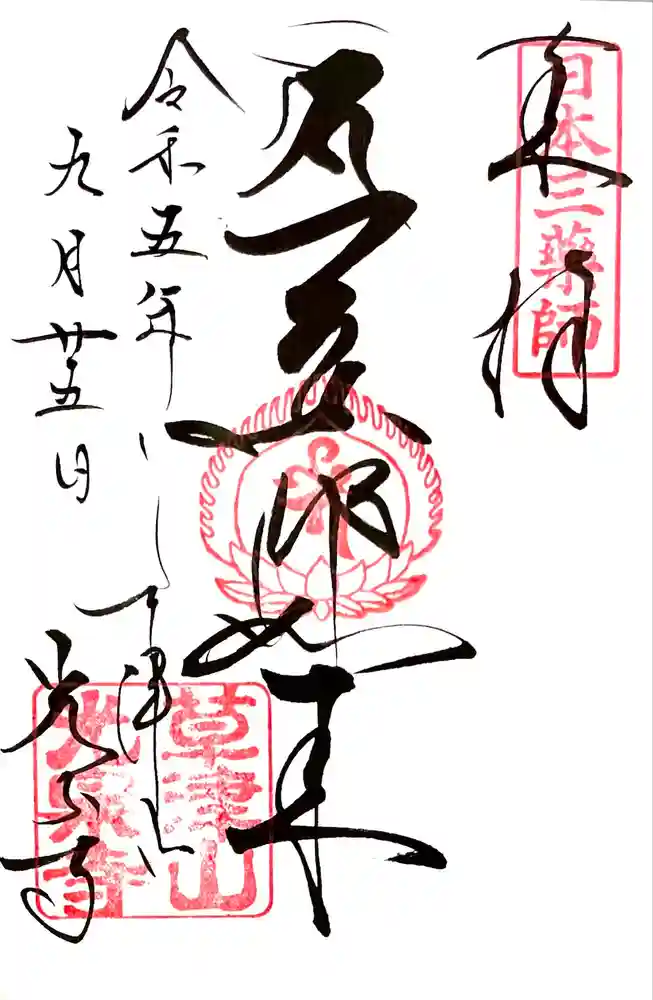 奉拝
日本三薬師
薬師如来
令和五年
九月廿五日
草津山
光泉寺
草津山
光泉寺